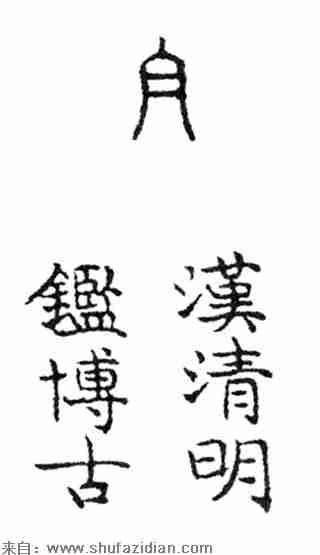 漢清明
鑑博古
来自：www.shufazidian.com.cn